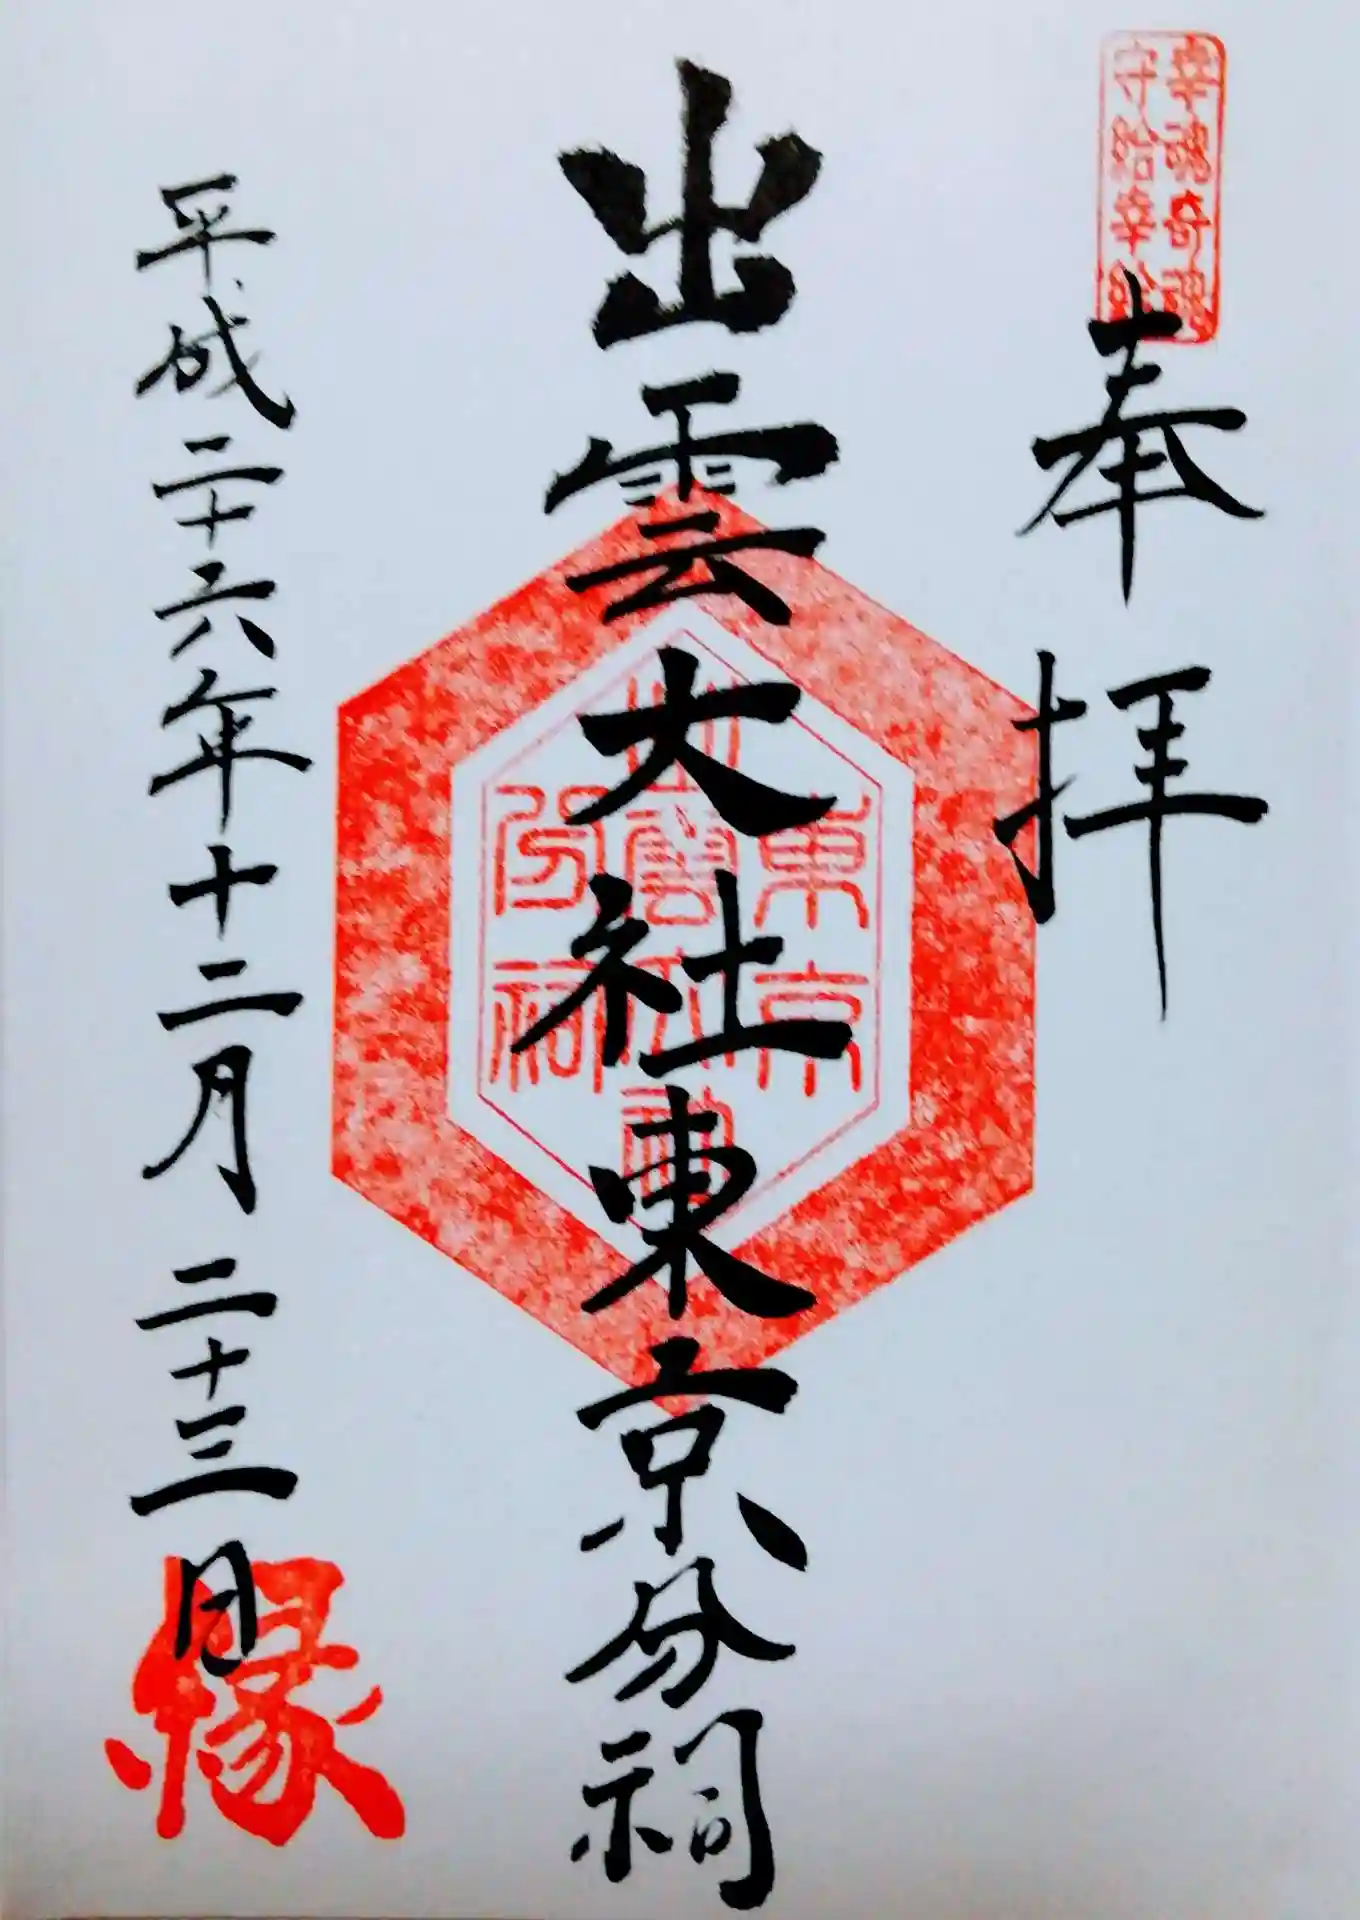 幸魂奇魂
守給幸給
奉拝
出雲大社東京分祠
東京
出雲大社
分祠
平成二十六年十二月二十三日
縁